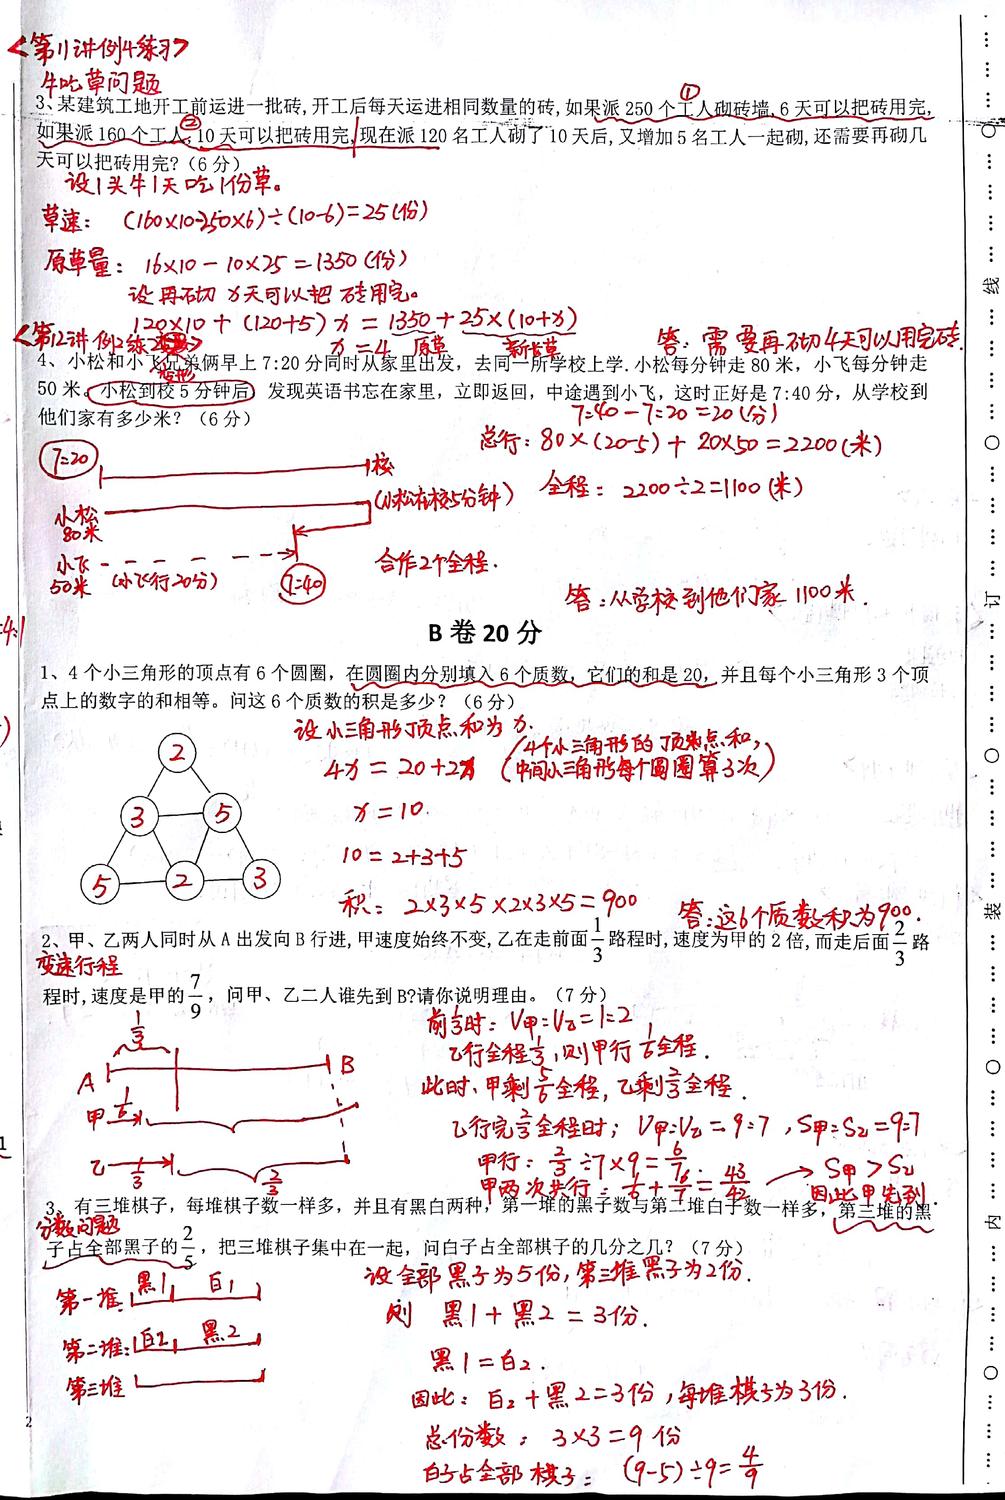 <第11讲例4练习>
牛吃草问题
①
3、某建筑工地开工前运进一批砖,开工后每天运进相同数量的砖,如果派250个工人砌砖墙,6天可以把砖用完,
②
如果派160个工人,10天可以把砖用完,现在派120名工人砌了10天后,又增加5名工人一起砌,还需要再砌几
天可以把砖用完?(6分)
设1头牛1天吃1份草。
草速: (160×10-250×6)÷(10-6)=25(份)
原草量: 16×10-10×25=1350(份)
设再砌x天可以把砖用完。
120×10+(120+5)x=1350+25×(10+x)
x=4 原草 新长草
答:需要再砌4天可以用完砖.
<第12讲例2练习
变形
4、小松和小飞兄弟俩早上7:20分同时从家里出发,去同一所学校上学.小松每分钟走80米,小飞每分钟走
50米。小松到校5分钟后,发现英语书忘在家里,立即返回,中途遇到小飞,这时正好是7:40分,从学校到
他们家有多少米?(6分)
7:40-7:20=20(分)
总行:80×(20-5)+20×50=2200(米)
7:20 校
(小松在校5分钟) 全程: 2200÷2=1100(米)
小松
80米
小飞
50米 (小飞行20分) 7:40
合作2个全程.
答:从学校到他们家1100米.
B卷20分
1、4个小三角形的顶点有6个圆圈,在圆圈内分别填入6个质数,它们的和是20,并且每个小三角形3个顶
点上的数字的和相等。问这6个质数的积是多少?(6分)
设小三角形顶点和为x.
4x=20+2x (4个小三角形的顶点和,
中间小三角形每个圆圈算3次)
2
3 5
5 2 3
x=10.
10=2+3+5
积: 2×3×5×2×3×5=900
答:这6个质数积为900.
2、甲、乙两人同时从A出发向B行进,甲速度始终不变,乙在走前面1/3路程时,速度为甲的2倍,而走后面2/3路
变速行程
程时,速度是甲的7/9,问甲、乙二人谁先到B?请你说明理由。(7分)
前1/3时: V甲:V乙=1:2
乙行全程1/3,则甲行1/6全程.
此时,甲剩5/6全程,乙剩2/3全程.
乙行完2/3全程时; V甲:V乙=9:7,S甲:S乙=9:7
甲行:2/3÷7×9=6/7.
甲两次共行:1/6+6/7=43/42
S甲>S乙
因此甲先到.
1/3
A B
甲 1/6
乙 1/3 2/3
3、有三堆棋子,每堆棋子数一样多,并且有黑白两种,第一堆的黑子数与第二堆白子数一样多,第三堆的黑
分数问题
子占全部黑子的2/5,把三堆棋子集中在一起,问白子占全部棋子的几分之几?(7分)
设全部黑子为5份,第三堆黑子为2份.
第一堆: 黑1 白1
则 黑1+黑2=3份.
第二堆: 白2 黑2
黑1=白2.
第三堆
因此:白2+黑2=3份,每堆棋子为3份.
总份数: 3×3=9份
白子占全部棋子: (9-5)÷9=4/9
2
线
订
装
内